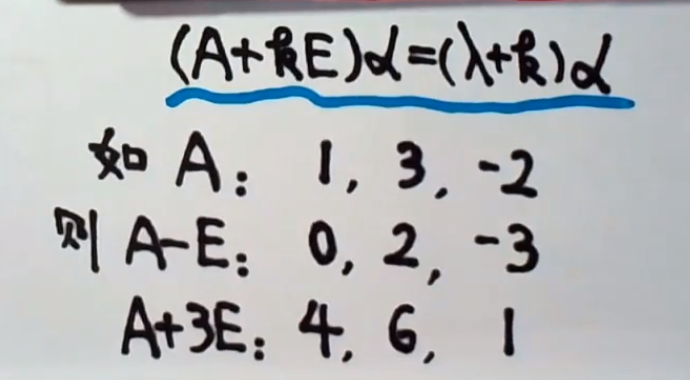 (A+kE)α=(λ+k)α
如 A: 1, 3, -2
则 A-E: 0, 2, -3
A+3E: 4, 6, 1